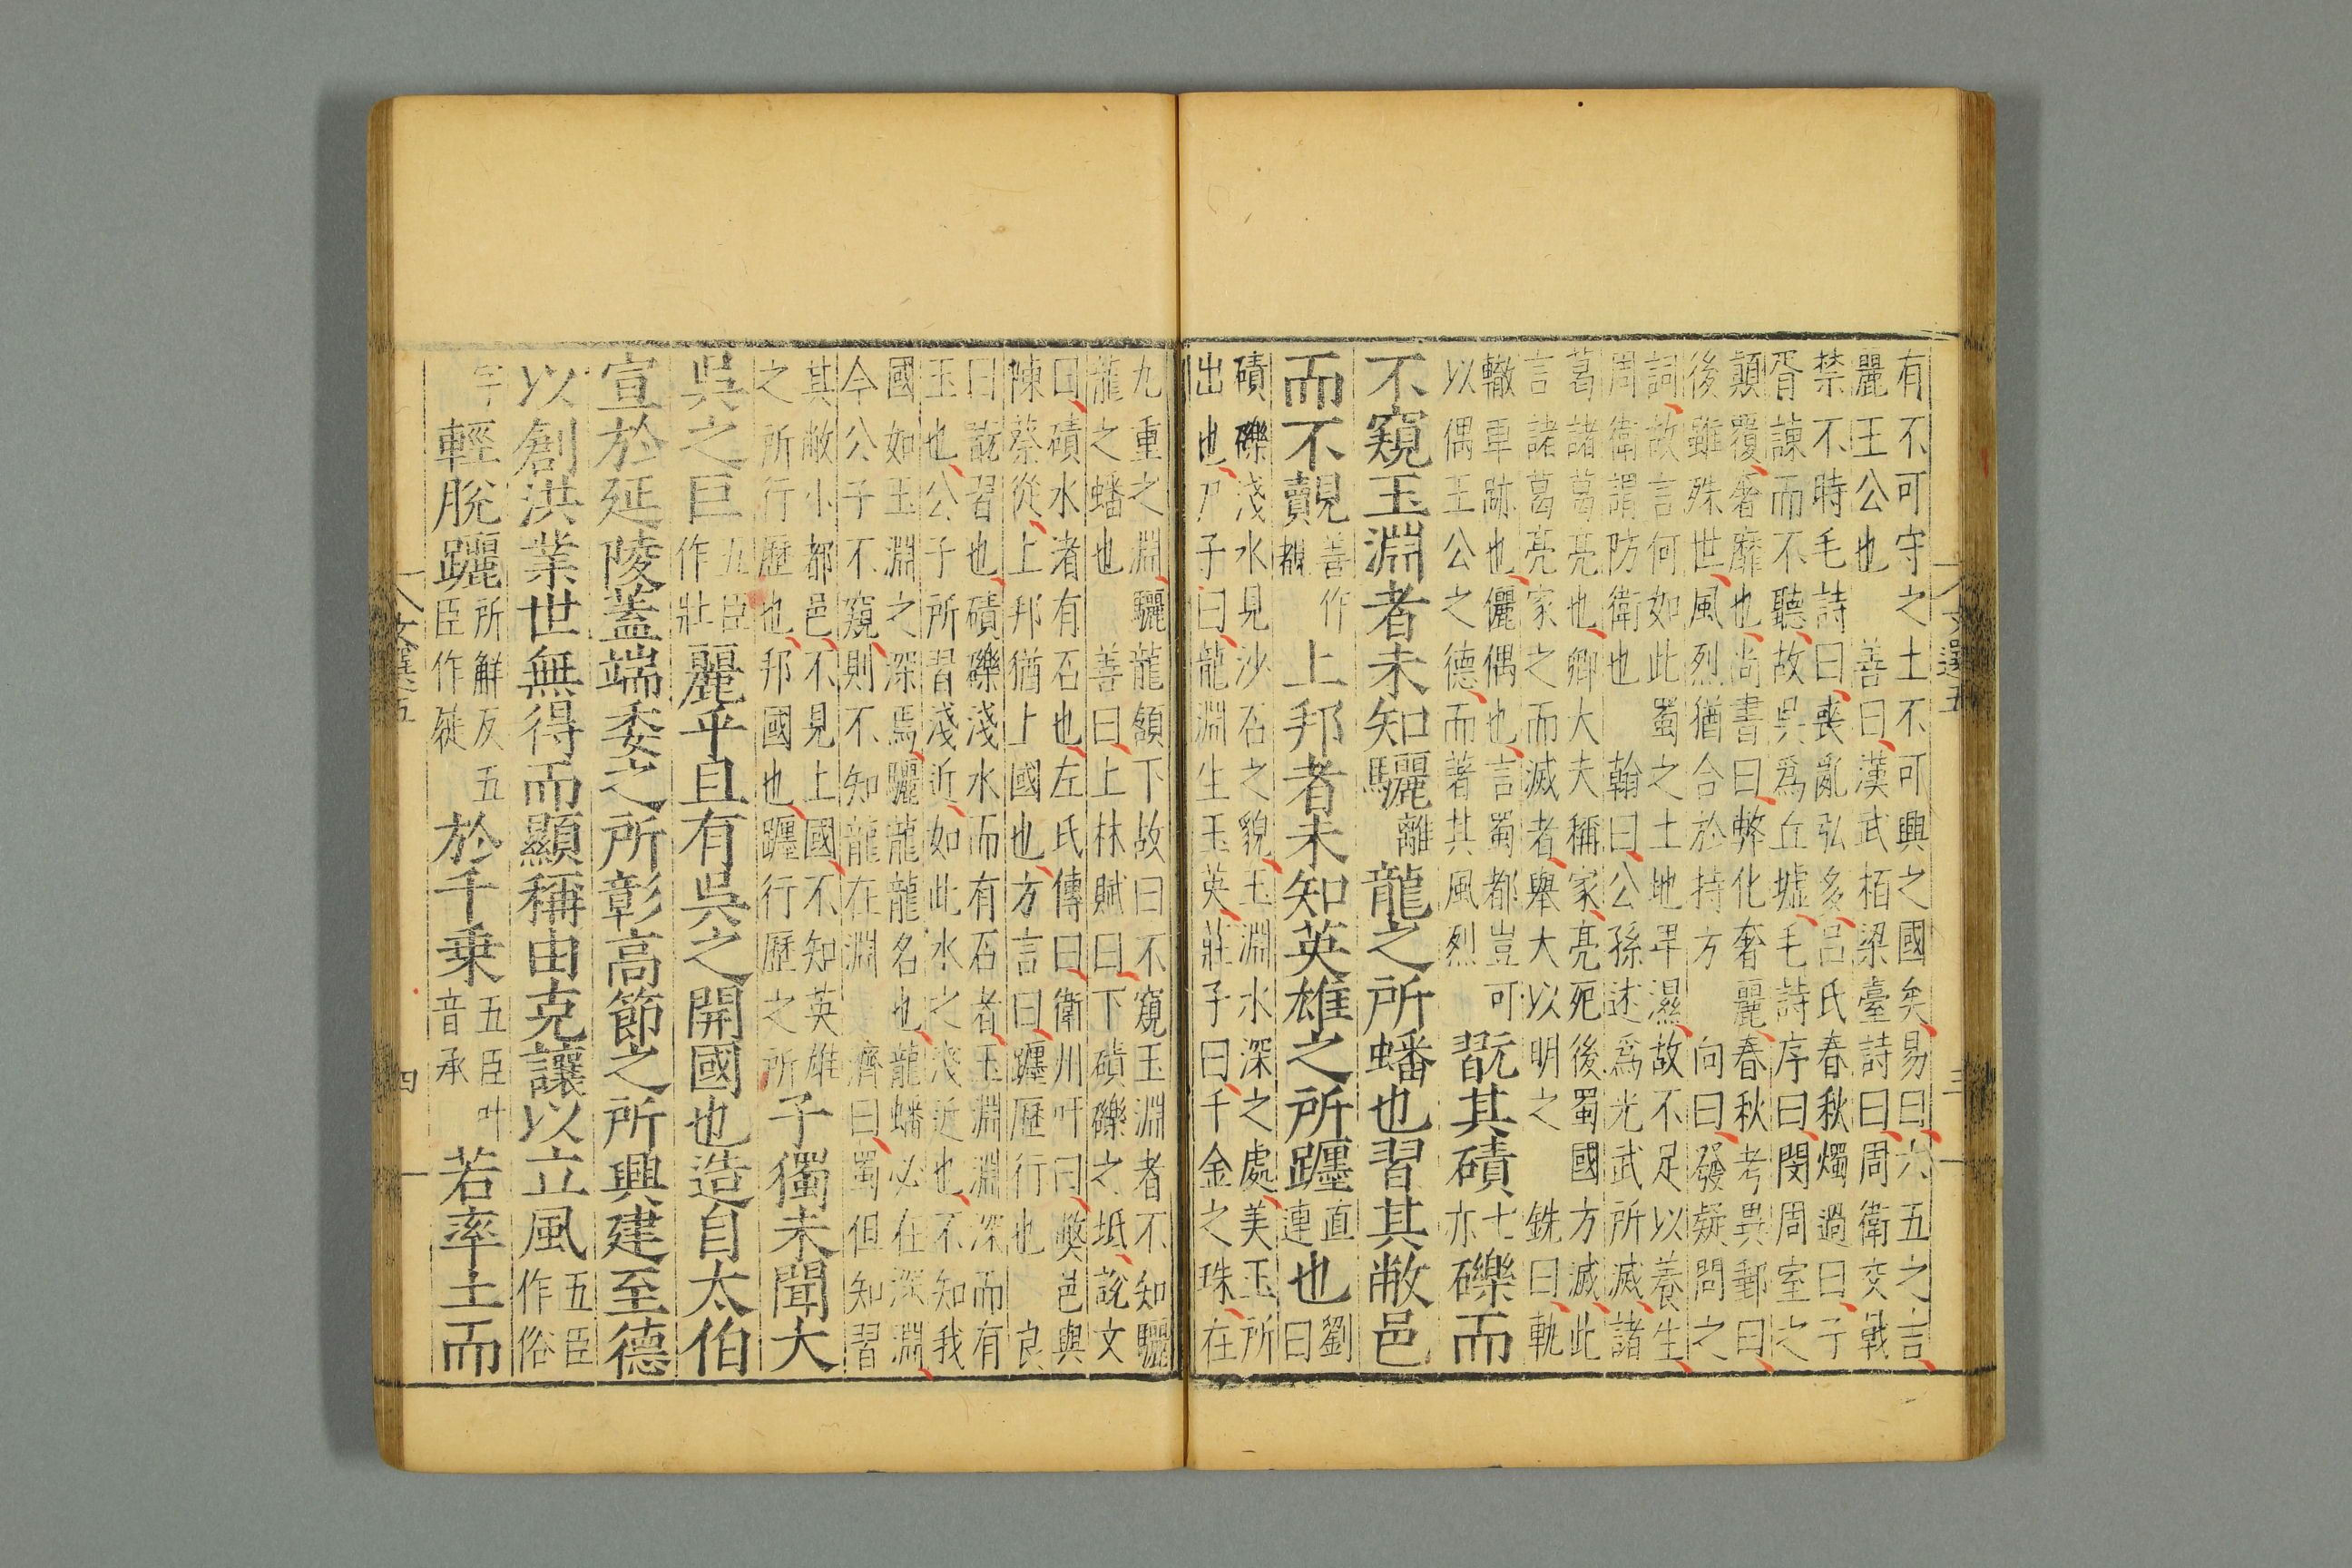 文選五
三
有不可守之土不可興之國矣易曰六五之言
麗王公也 善曰漢武栢梁臺詩曰周衛交戟
禁不時毛詩曰喪亂弘多呂氏春秋燭過曰子
胥諫而不聽故吳爲丘墟毛詩序曰閔周室之
顛覆奢靡也尚書曰弊化奢麗春秋考異郵曰
後雖殊世風烈猶合於持方 向曰發疑問之
詞故言何如此蜀之土地卑濕故不足以養生
周衛謂防衛也 翰曰公孫述爲光武所滅諸
葛諸葛亮也卿大夫稱家亮死後蜀國方滅此
言諸葛亮家之而滅者舉大以明之 銑曰軌
轍車跡也儷偶也言蜀都豈可
以偶王公之德而著其風烈
翫其磧七亦礫而
不窺玉淵者未知驪離龍之所蟠也習其敝邑
而不覿善作覩上邦者未知英雄之所躔直連也劉曰
磧礫淺水見沙石之貌玉淵水深之處美玉所
出也尸子曰龍淵生玉英莊子曰千金之珠在
九重之淵驪龍頷下故曰不窺玉淵者不知驪
龍之蟠也 善曰上林賦曰下磧礫之坻說文
曰磧水渚有石也左氏傳曰衛州吁曰獘邑與
陳蔡從上邦猶上國也方言曰躔歷行也 良
曰翫習也磧礫淺水而有石者玉淵淵深而有
玉也公子所習淺近如此水之淺近也不知我
國如玉淵之深焉驪龍龍名也龍蟠必在深淵
今公子不窺則不知龍在淵 濟曰蜀但知習
其敝小都邑不見上國不知英雄
之所行歷也邦國也躔行歷之所
子獨未聞大
吳之巨五臣作壯麗乎且有吳之開國也造自太伯
宣於延陵蓋端委之所彰高節之所興建至德
以創洪業世無得而顯稱由克讓以立風五臣作俗
輕脫躧所解反五臣作徙於千乗五臣叶音承若率土而
文選五
四